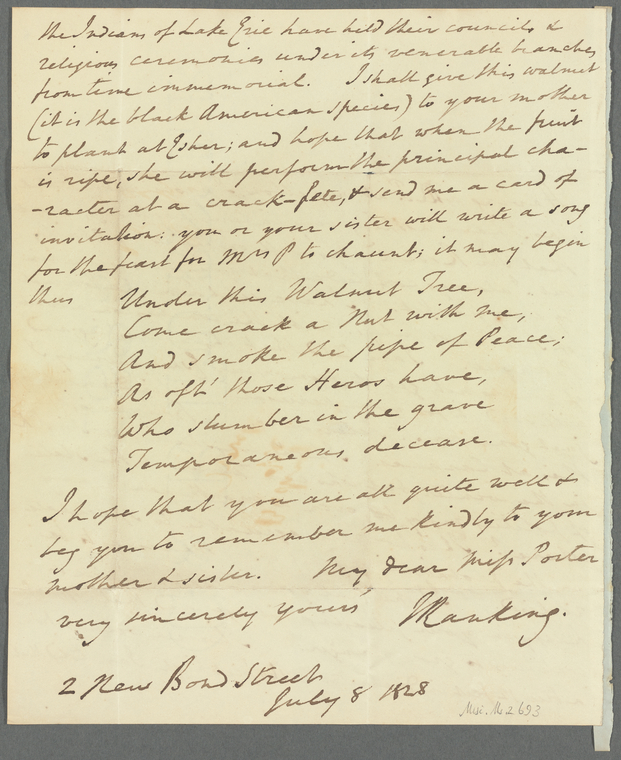 the Indians of Lake Erie have held their councils &
religious ceremonies under its venerable branches
from time immemorial. I shall give this walnut
(it is the black American species) to your mother
to plant at Esher; and hope that when the fruit
is ripe, she will perform the principal cha-
-racter at a crack-fete, & send me a card of
invitation: you or your sister will write a song
for the feast for Mrs P to chaunt; it may begin
thus Under this Walnut Tree,
Come crack a Nut with me,
And smoke the pipe of Peace;
As oft' those Heros have,
Who slumber in the grave
Temporaneous decease.
I hope that you are all quite well &
beg you to remember me kindly to your
mother & sister. My dear Miss Porter
very sincerely yours JRanking.
2 New Bond Street
July 8 1828